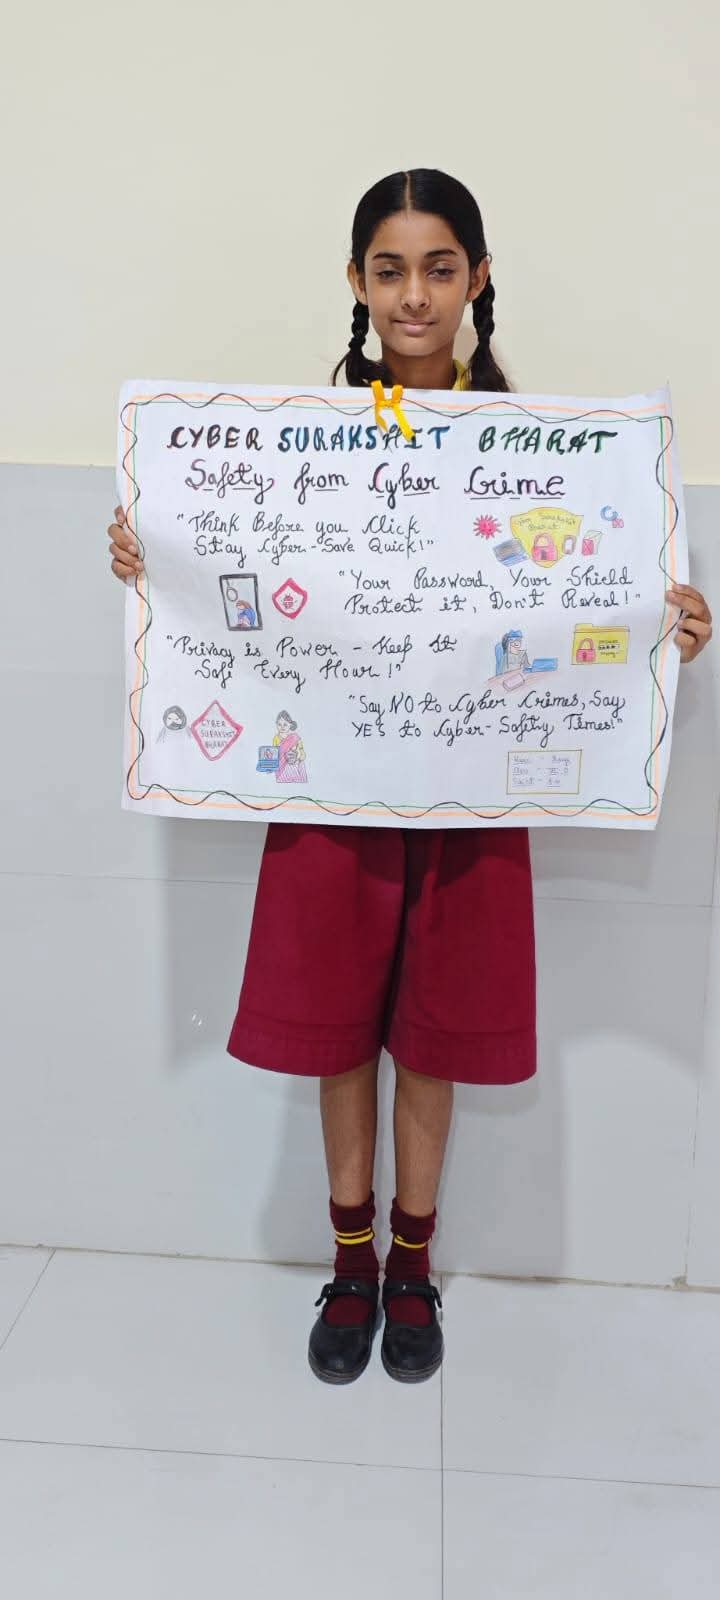 CYBER SURAKSHIT BHARAT
Safety from Cyber Crime
"Think Before you Click
Stay Cyber-Save Quick!"
"Your Password, Your Shield
Protect it, Don't Reveal!"
"Privacy is Power - Keep It
Safe Every Hour!"
"Say NO to Cyber Crimes, Say
YES to Cyber-Safety Times!"
CYBER
SURAKSHIT
BHARAT